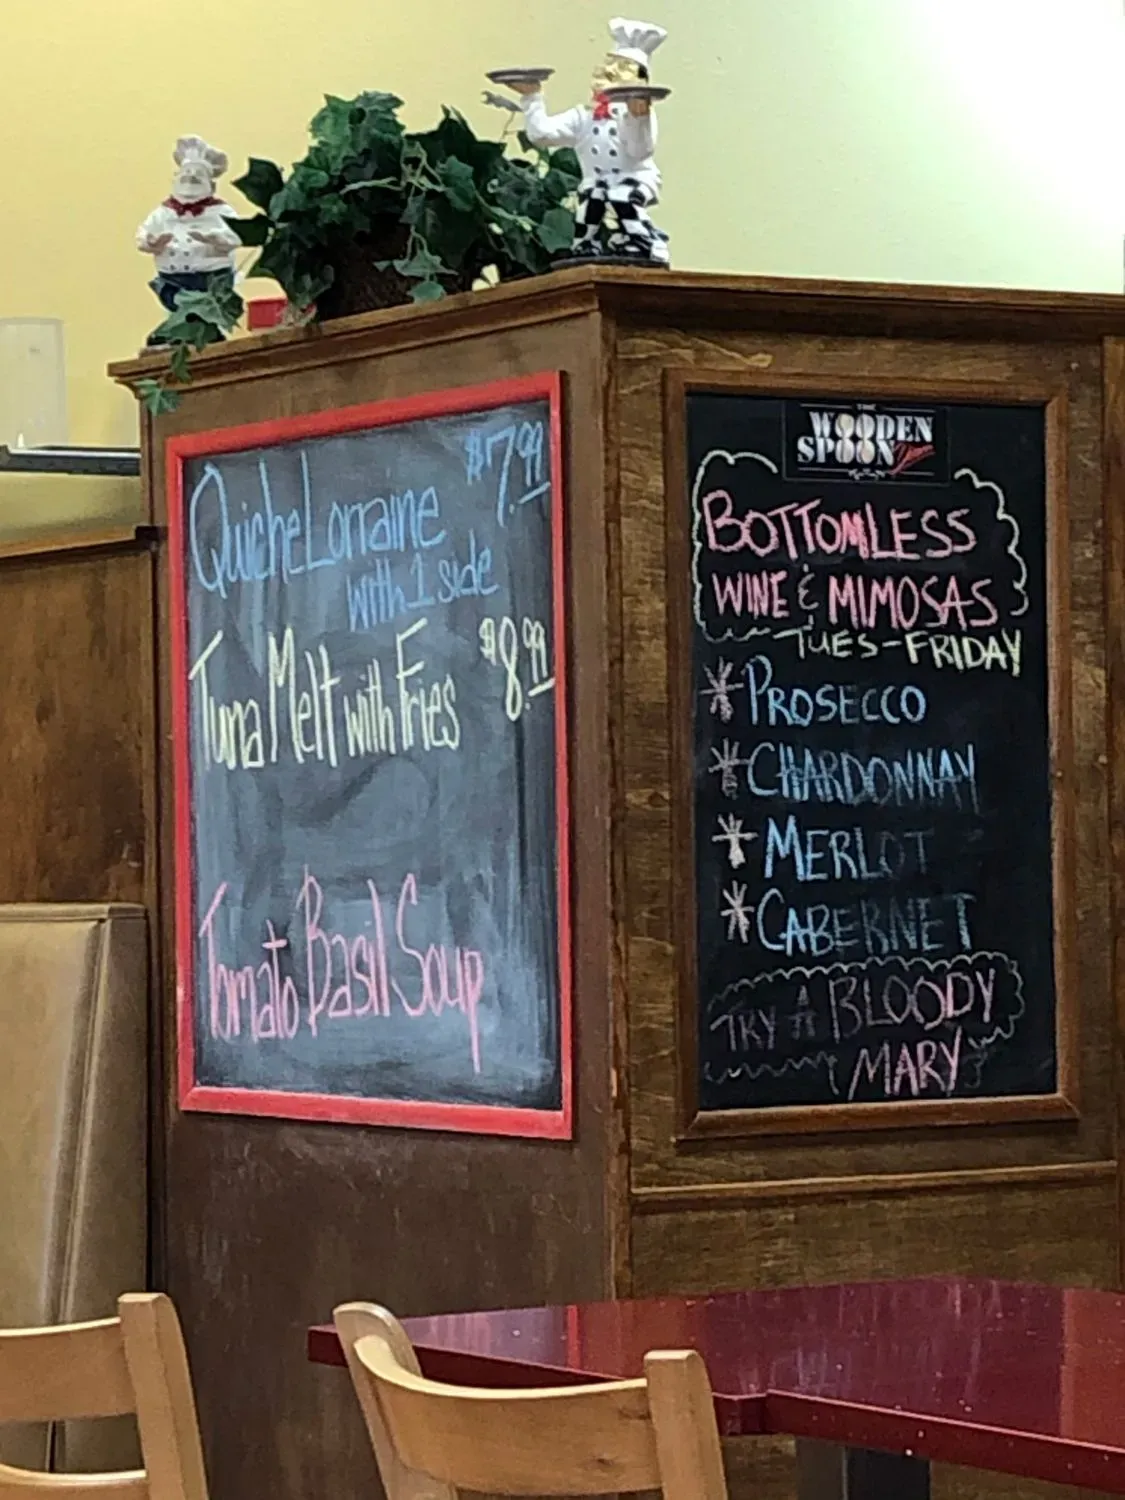 Quiche Lorraine $7.99
with 1 side
Tuna Melt with Fries $8.99
Tomato Basil Soup
THE
WOODEN
SPOON
BOTTOMLESS
WINE & MIMOSAS
TUES-FRIDAY
* PROSECCO
* CHARDONNAY
* MERLOT
* CABERNET
TRY A BLOODY
MARY